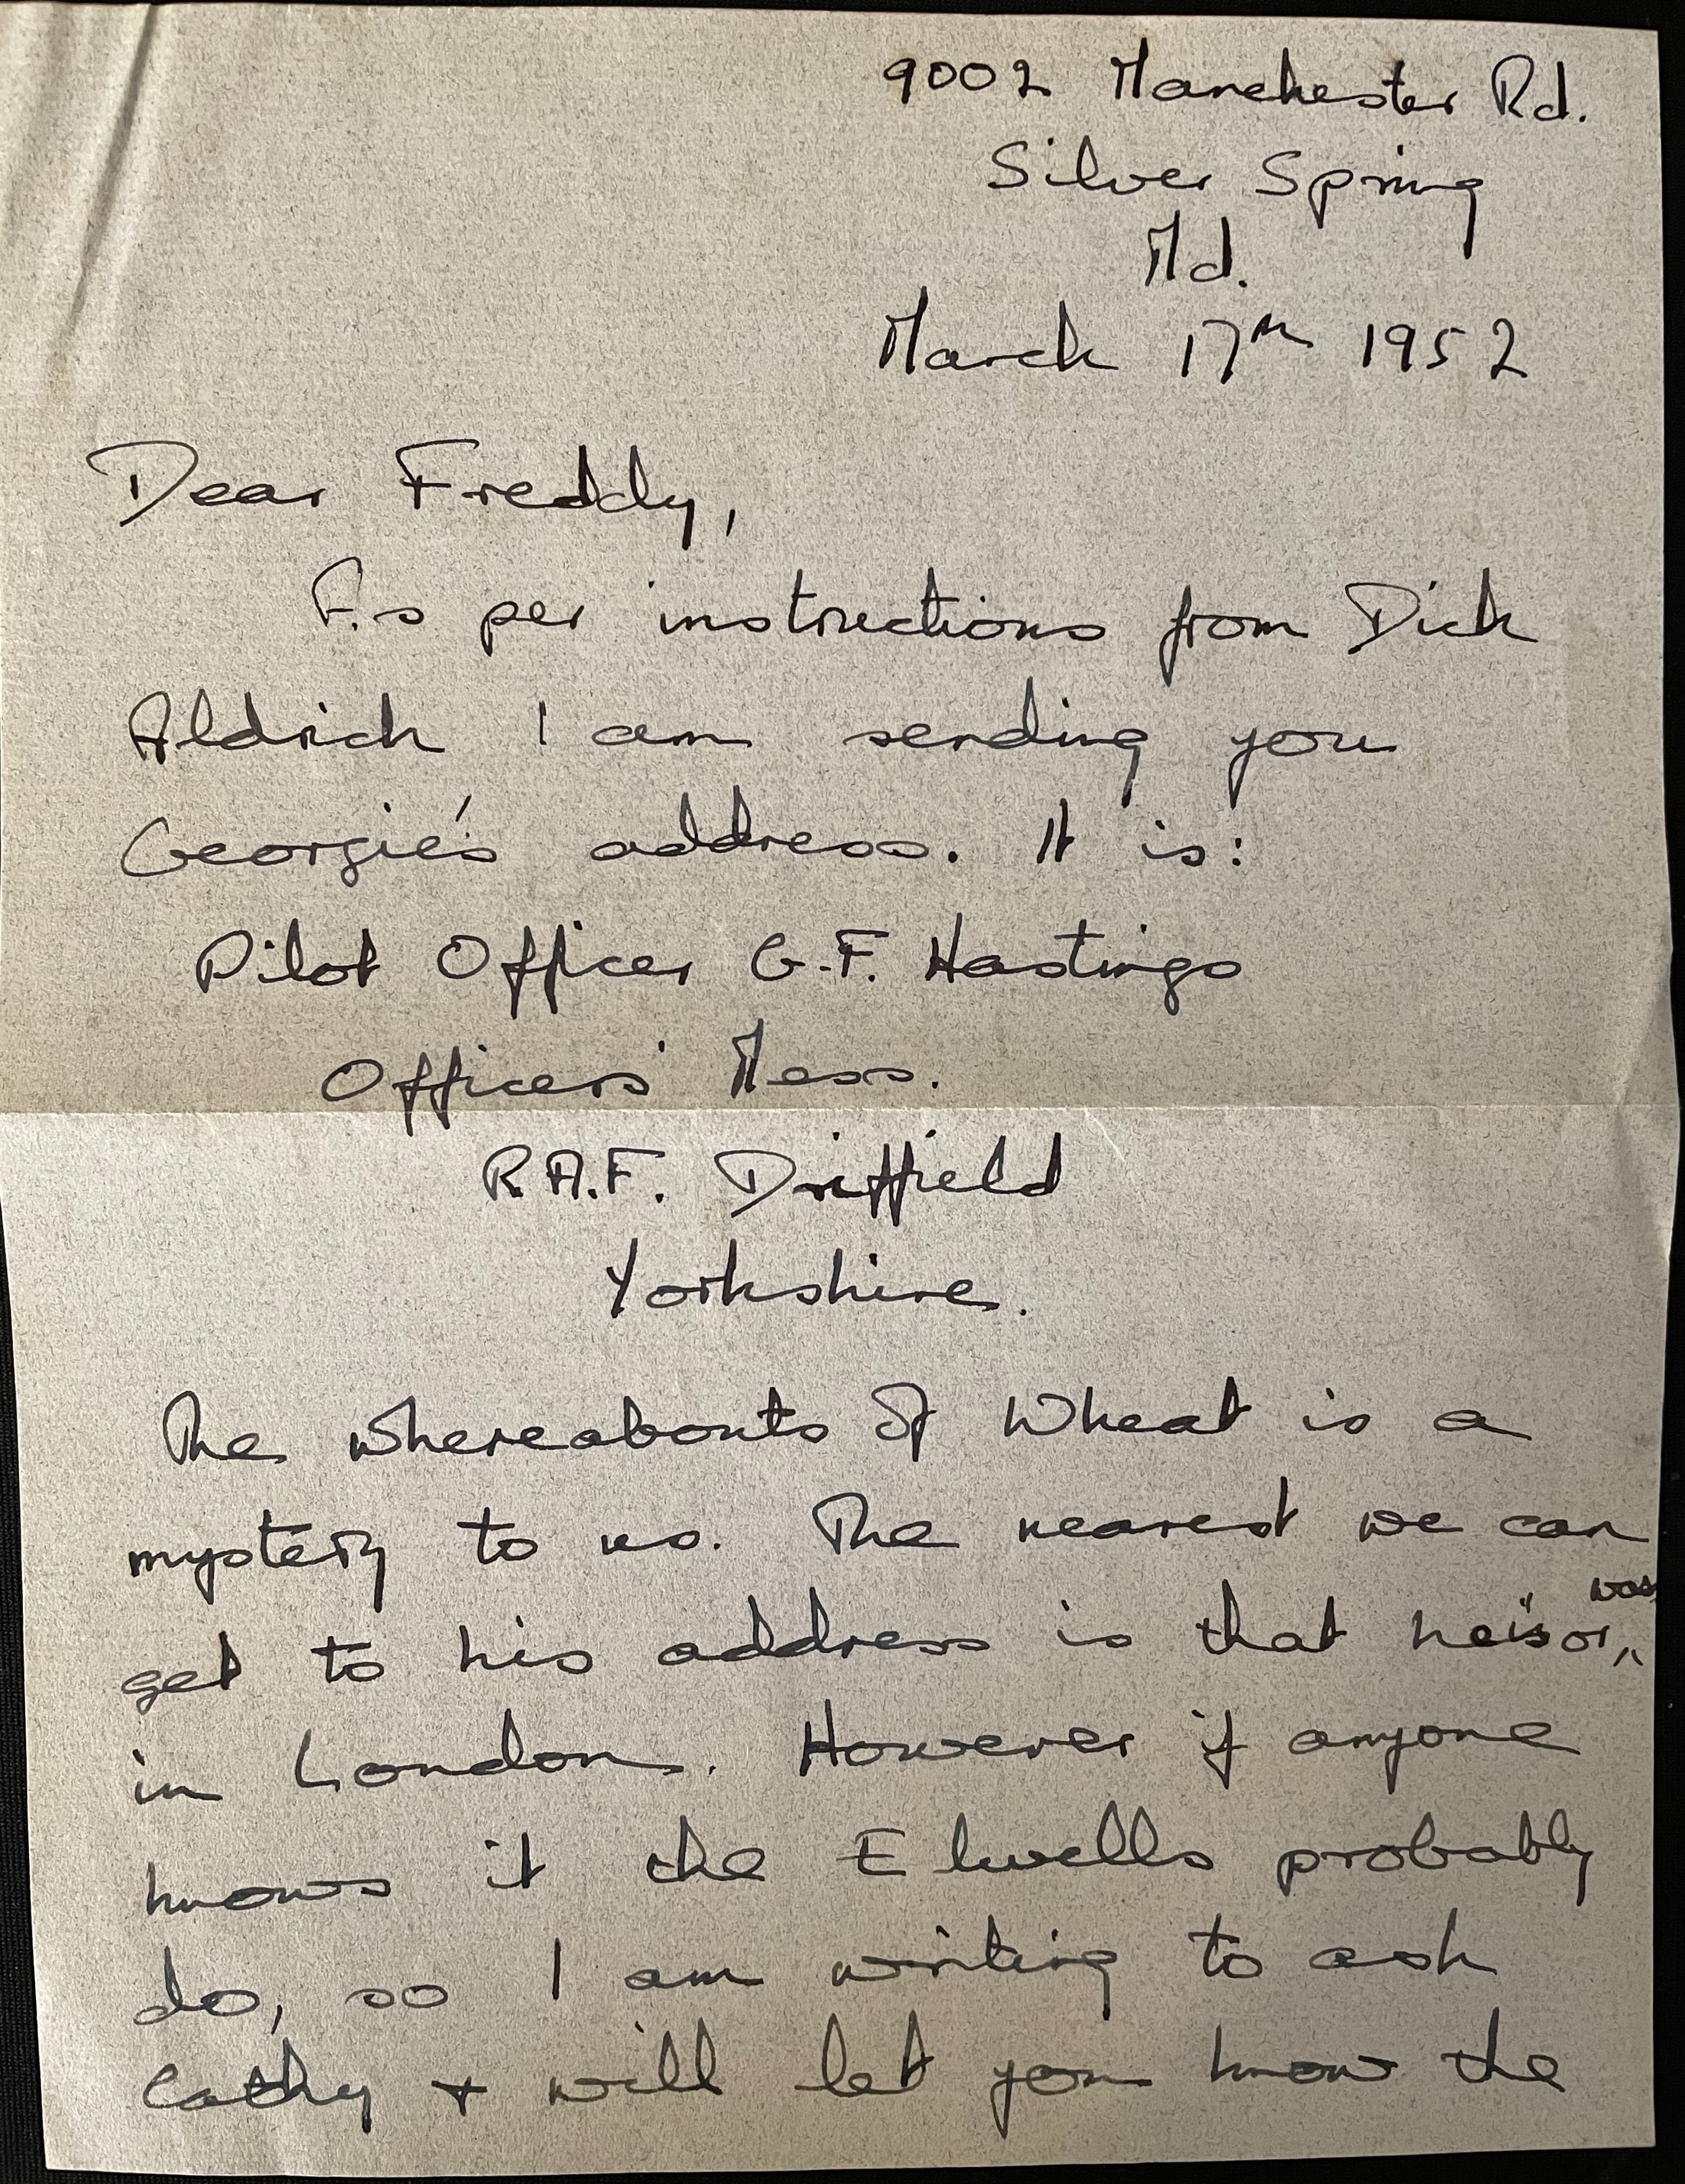 9002 Manchester Rd.
Silver Spring
Md.
March 17th 1952
Dear Freddy,
As per instructions from Dick
Aldrich I am sending you
Georgie's address. It is:
Pilot Officer G.F. Hastings
Officers' Mess.
R.A.F. Driffield
Yorkshire.
The whereabouts of Wheat is a
mystery to us. The nearest we can
get to his address is that he is or was
in London. However if anyone
knows it the Elwells probably
do, so I am writing to ask
Cathy + will let you know the